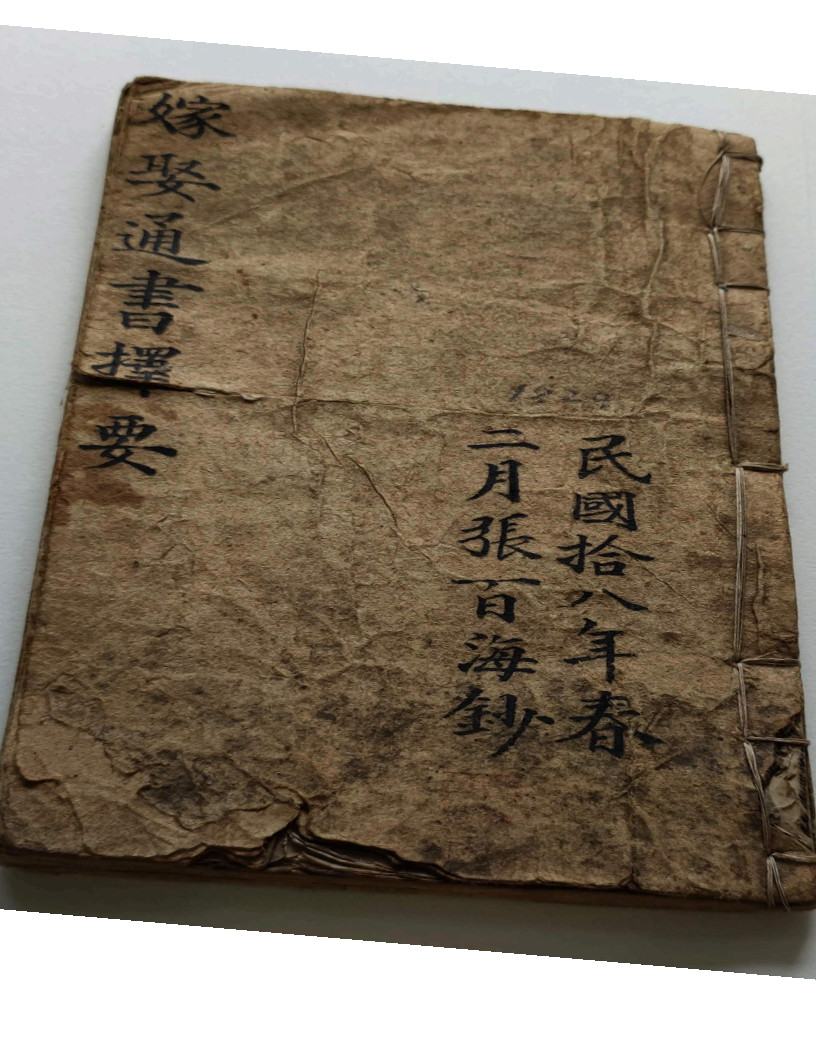 民國拾八年春
二月張百海鈔
嫁娶通書擇要
1929